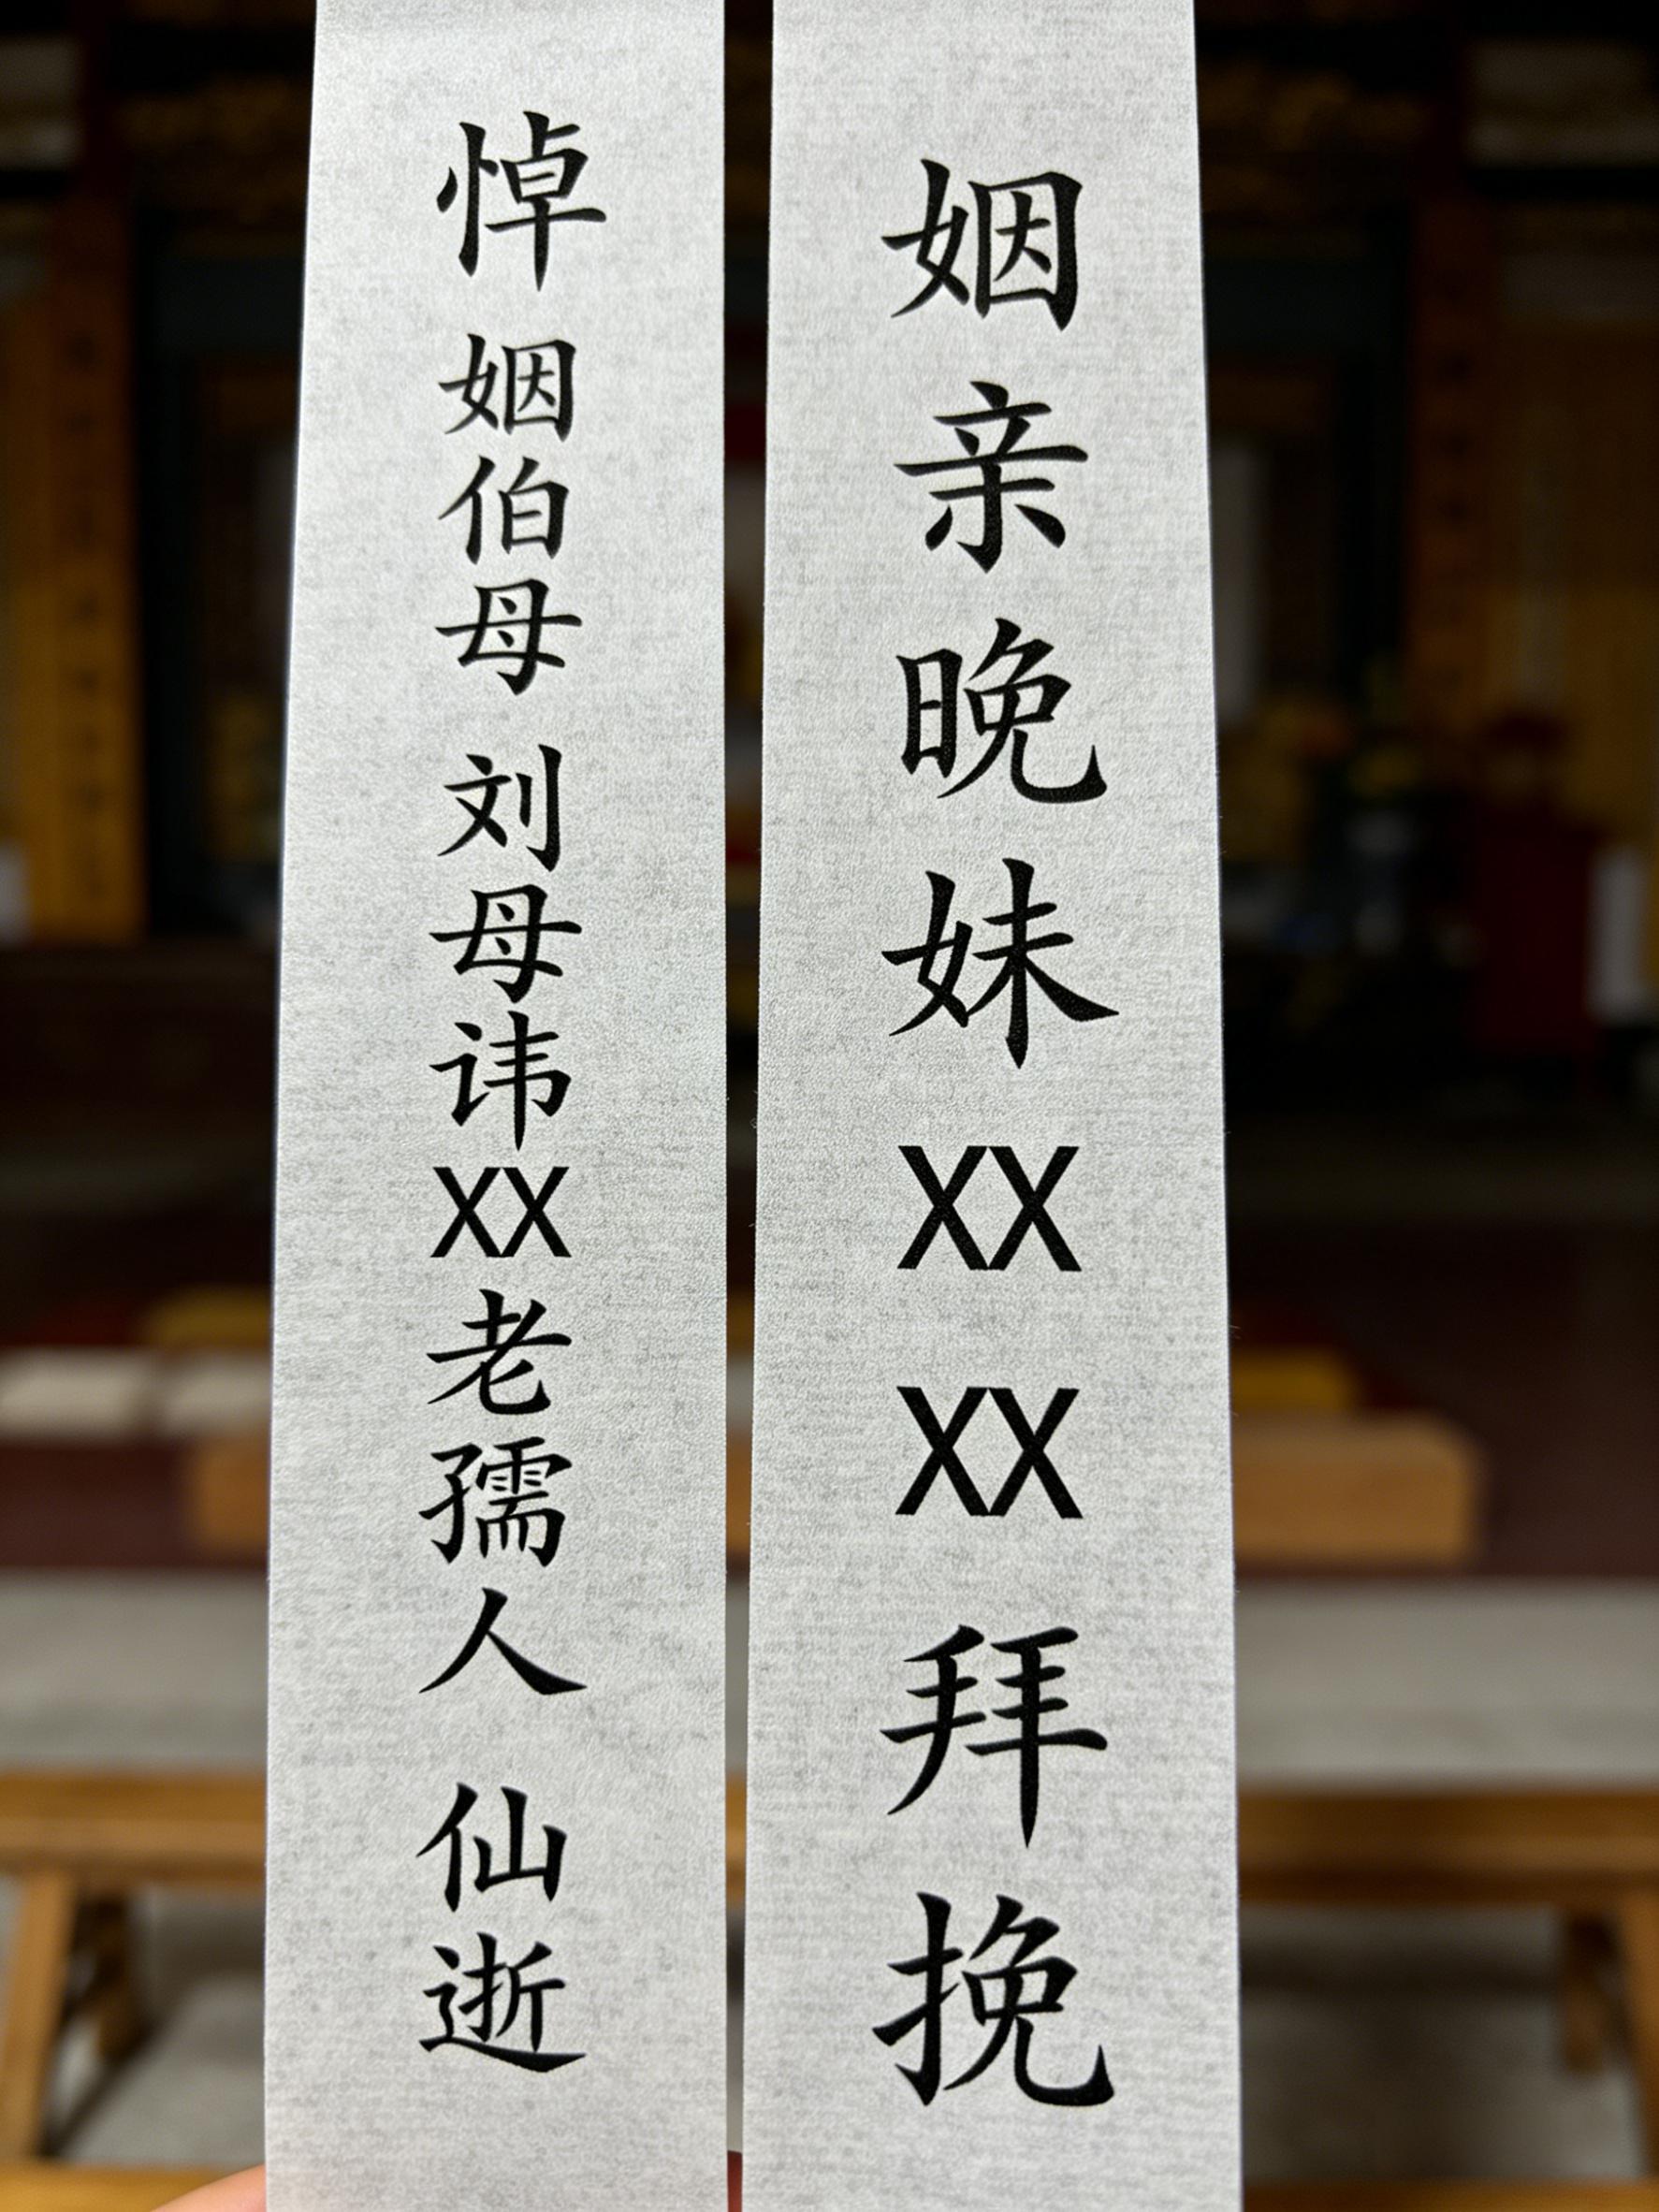 悼 姻伯母 刘母讳XX老孺人 仙逝
姻亲晚妹XXXX拜挽